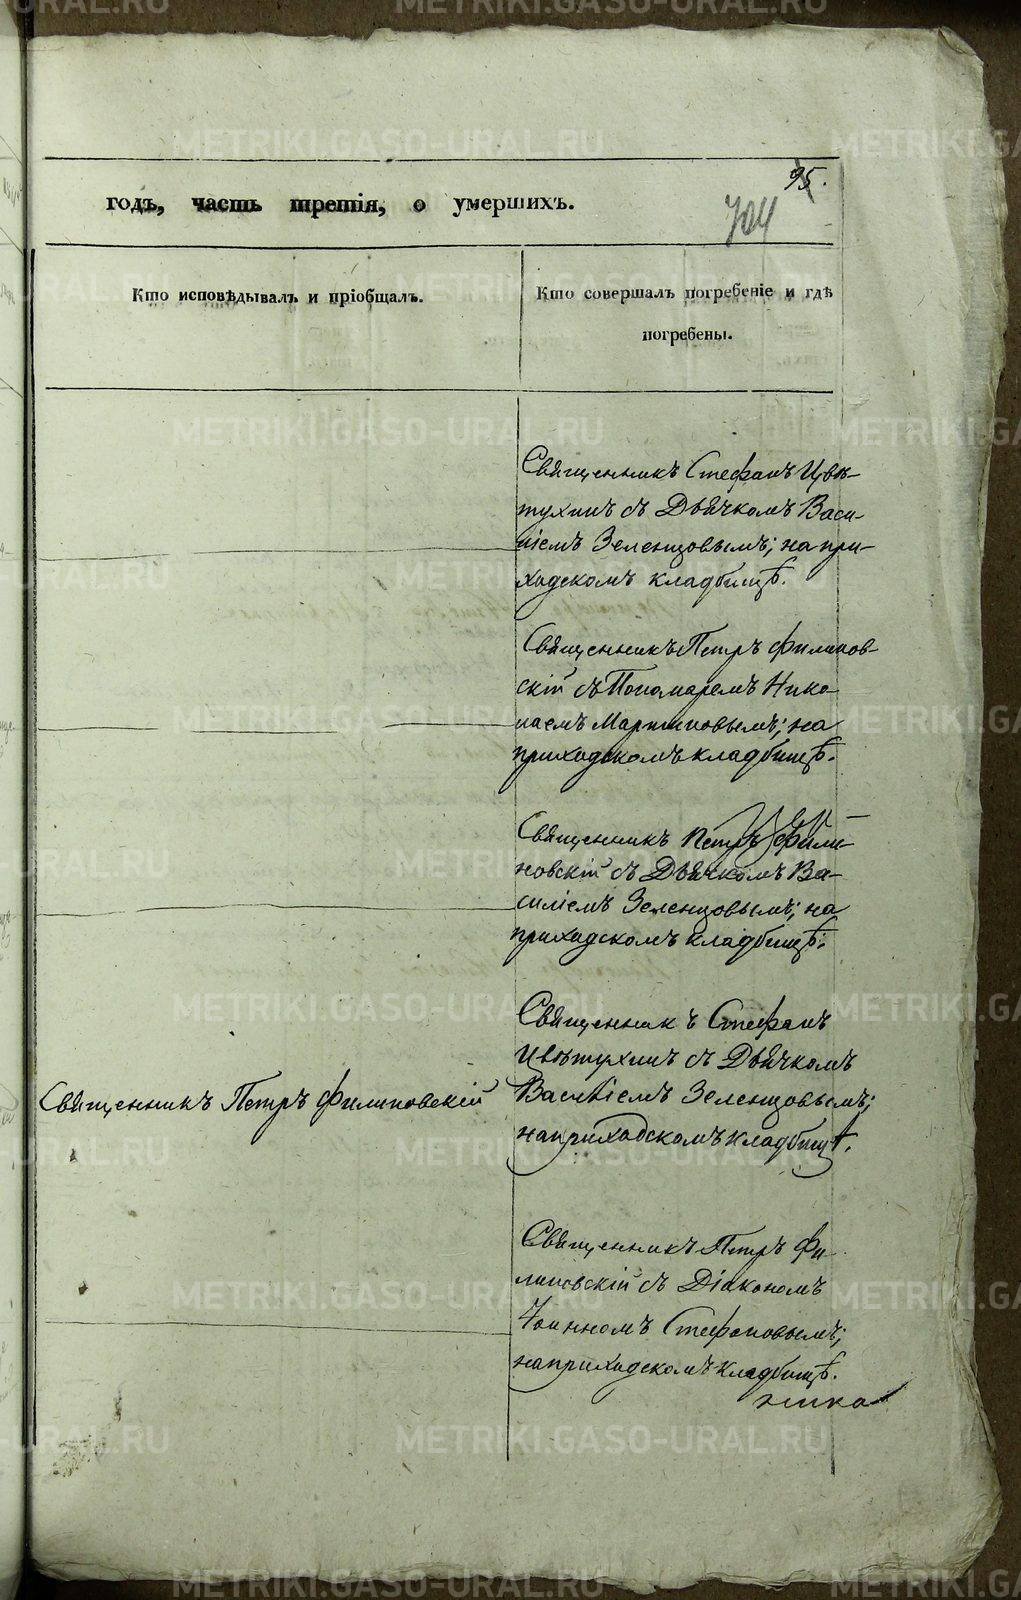 95.
704
годъ, часть третія, о умершихъ.
Кто исповѣдывалъ и пріобщалъ.
Кто совершалъ погребеніе и гдѣ
погребены.
Священникъ Стефанъ Цвѣ-
тухинъ съ Дьячкомъ Васи-
ліемъ Зеленцовымъ; на при-
ходскомъ кладбищѣ.
Священникъ Петръ Филипов-
скій съ Пономаремъ Нико-
лаемъ Мартиновымъ; на
приходскомъ кладбищѣ.
Священникъ Петръ Фили-
повскій съ Дьячкомъ Ва-
силіемъ Зеленцовымъ; на
приходскомъ кладбищѣ.
Священникъ Петръ Филиповскій
Священникъ Стефанъ
Цвѣтухинъ съ Дьячкомъ
Василіемъ Зеленцовымъ;
на приходскомъ кладбищѣ.
Священникъ Петръ Фи-
липовскій съ Діакономъ
Іоанномъ Стефановымъ;
на приходскомъ кладбищѣ.
METRIKI.GASO-URAL.RU